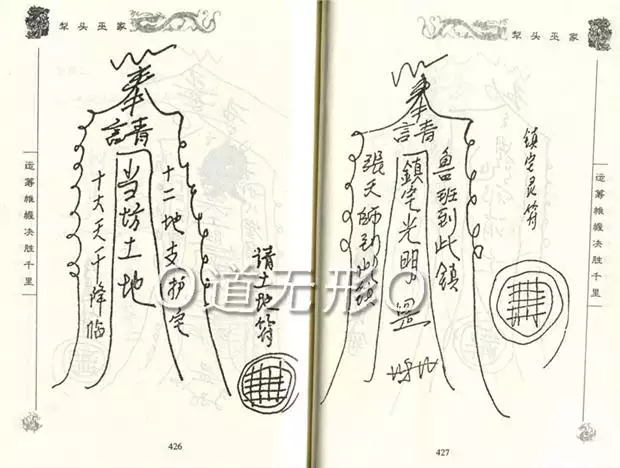 犁头巫家
运筹帷幄决胜千里
奉
請
十二地支护宅
当坊土地
十大天干降临
请土地符
426
犁头巫家
运筹帷幄决胜千里
鎮宅灵符
奉
請
魯班到此鎮
鎮宅光明
張天師到此鎮
427
道无形